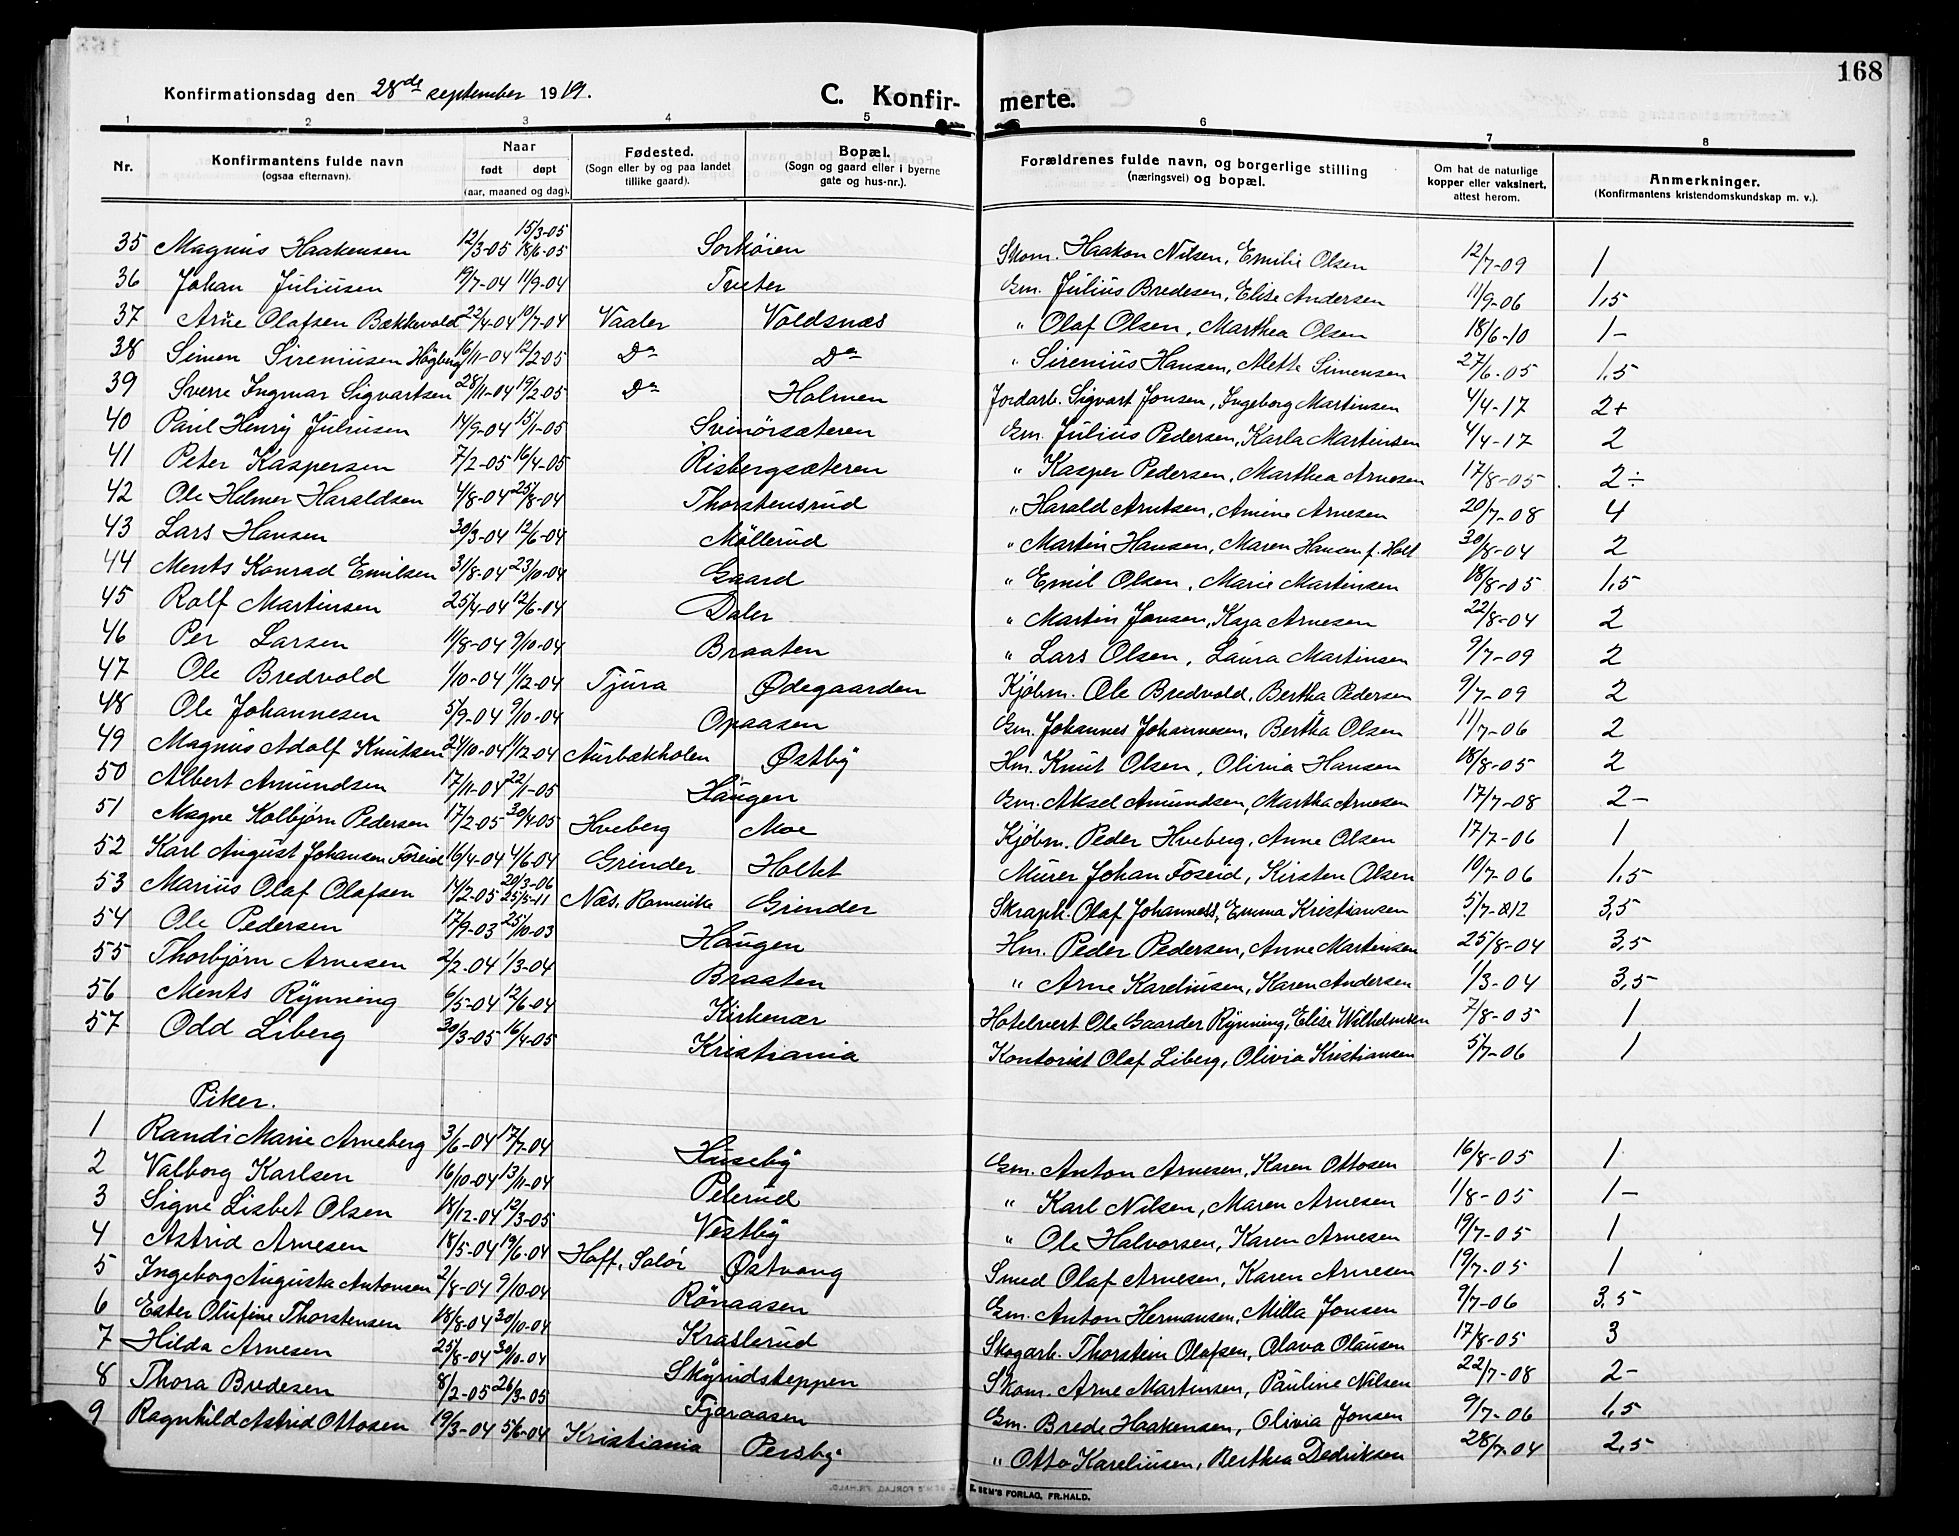 168
Konfirmationsdag den 28de september 1919.
C. Konfir- merte.
1 2 3 4 5 6 7 8
Nr. Konfirmantens fulde navn (ogsaa efternavn). Naar født døpt (aar, maaned og dag). Fødested. (Sogn eller by og paa landet tillike gaard). Bopæl. (Sogn og gaard eller i byerne gate og hus-nr.). Forældrenes fulde navn, og borgerlige stilling (næringsvei) og bopæl. Om hat de naturlige kopper eller vaksinert, attest herom. Anmerkninger. (Konfirmantens kristendomskundskap m. v.).
35 Magnus Haakensen 12/3-05 15/3-05 18/6-05 Sorknien Skom. Haakon Nilsen, Emilie Olsen 12/7-09 1
36 Johan Juliusen 19/7-04 11/9-04 Tveter Gm. Julius Bredesen, Elise Andersen 11/9-06 1,5
37 Arne Olafsen Bækkevold 22/4-04 10/7-04 Vaaler Voldsnæs " Olaf Olsen, Marthea Olsen 18/6-10 1-
38 Simen Sireniusen Høgberg 16/11-04 12/2-05 Do Do " Sirenius Hansen, Alette Simensen 27/6-05 1,5
39 Sverre Ingmar Sigvartsen 28/11-04 19/2-05 Do Holmen Jordarb. Sigvart Jonsen, Ingeborg Martinsen 4/4-17 2+
40 Paul Henry Juliusen 14/9-04 15/1-05 Svinørsæteren Gm. Julius Pedersen, Karla Martinsen 4/4-17 2
41 Peter Kaspersen 7/2-05 16/4-05 Risbergsæteren " Kasper Pedersen, Marthea Arnesen 17/8-05 2÷
42 Ole Helmer Haraldsen 4/8-04 25/8-04 Thorstensrud " Harald Arntsen, Amine Arnesen 20/7-08 4
43 Lars Hansen 30/3-04 12/6-04 Møllerud " Martin Hansen, Maren Hansen f. Holt 30/8-04 2
44 Ments Konrad Emilsen 31/8-04 23/10-04 Gaard " Emil Olsen, Marie Martinsen 18/8-05 1,5
45 Rolf Martinsen 25/4-04 12/6-04 Daler " Martin Jonsen, Kaja Arnesen 22/8-04 2
46 Per Larsen 11/8-04 9/10-04 Braaten " Lars Olsen, Laura Martinsen 9/7-09 2
47 Ole Bredvold 1/10-04 11/12-04 Tjura Ødegaarden Kjøbm. Ole Bredvold, Bertha Pedersen 9/7-09 2
48 Ole Johannesen 5/9-04 9/10-04 Opaasen Gm. Johannes Johannesen, Bertha Olsen 11/7-06 2
49 Magnus Adolf Knutsen 24/10-04 11/12-04 Aurbækholen Østby Hm. Knut Olsen, Olivia Hansen 18/8-05 2
50 Albert Amundsen 17/11-04 22/1-05 Haugen Gm. Aksel Amundsen, Martha Arnesen 17/7-08 2-
51 Magne Kolbjørn Pedersen 17/2-05 30/4-05 Hveberg Moe Kjøbm. Peder Hveberg, Anne Olsen 17/7-06 1
52 Karl August Johansen Foseid 16/4-04 4/6-04 Grinder Holtet Murer Johan Foseid, Kirsten Olsen 19/7-06 1,5
53 Marius Olaf Olafsen 14/2-05 20/3-06 25/5-11 Næs, Romerike Grinder Skraph. Olaf Johanness, Emma Kristiansen 5/7-12 3,5
54 Ole Pedersen 17/9-03 25/10-03 Haugen Hm. Peder Pedersen, Anne Martinsen 25/8-04 3,5
55 Thorbjørn Arnesen 2/2-04 1/3-04 Braaten " Arne Kareliusen, Karen Andersen 1/3-04 3,5-
56 Ments Rynning 6/5-04 12/6-04 Kirkenær Hotelvert Ole Gaarder Rynning, Elise Wilhelmsen 7/8-05 1
57 Odd Liberg 30/3-05 16/4-05 Kristiania Kontorist Olaf Liberg, Olivia Kristiansen 5/7-06 1
Piker.
1 Randi Marie Arneberg 3/6-04 17/7-04 Huseby Gm. Anton Arnesen, Karen Ottosen 16/8-05 1
2 Valborg Karlsen 16/10-04 13/11-04 Pelerud " Karl Nilsen, Maren Arnesen 1/8-05 1-
3 Signe Lisbet Olsen 18/12-04 12/3-05 Vestby " Ole Halvorsen, Karen Arnesen 19/7-05 1
4 Astrid Arnesen 18/5-04 19/6-04 Hoff, Solør Østvang Smed Olaf Arnesen, Karen Arnesen 19/7-05 1
5 Ingeborg Augusta Antonsen 2/8-04 9/10-04 Rønaasen Gm. Anton Hermansen, Milla Jonsen 9/7-06 3,5
6 Ester Olufine Thorstensen 18/8-04 30/10-04 Kraslerud Skogarb. Thorstein Olafsen, Olava Olausen 17/8-05 3
7 Hilda Arnesen 25/8-04 30/10-04 Skyrudsteppen Skom. Arne Martinsen, Pauline Nilsen 22/7-08 2-
8 Thora Bredesen 8/2-05 26/3-05 Tjaraasen Gm. Brede Haakensen, Olivia Jonsen 9/7-06 1,5
9 Ragnhild Astrid Ottosen 19/3-04 5/6-04 Kristiania Persby " Otto Kareliusen, Berthea Dedriksen 28/7-04 2,5
E. SEM'S FORLAG, FR.HALD.